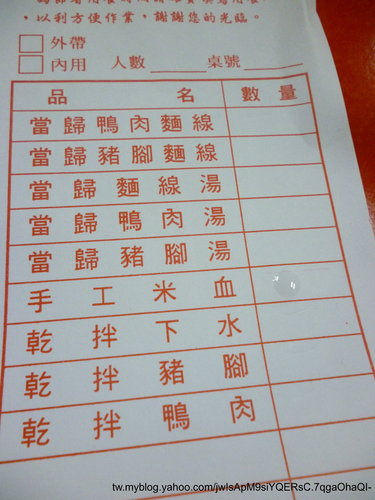 ，以利方便作業，謝謝您的光臨。
外帶
內用 人數 桌號
品名 數量
當歸鴨肉麵線
當歸豬腳麵線
當歸麵線湯
當歸鴨肉湯
當歸豬腳湯
手工米血
乾拌下水
乾拌豬腳
乾拌鴨肉
tw.myblog.yahoo.com/jwIsApM9siYQERsC.7qgaOhaQI-